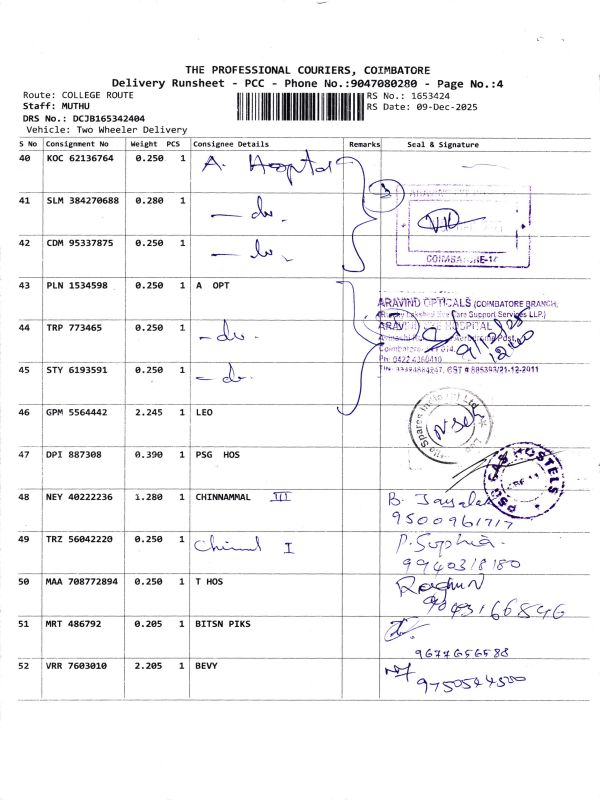 THE PROFESSIONAL COURIERS, COIMBATORE
Delivery Runsheet - PCC - Phone No.:9047080280 - Page No.:4
Route: COLLEGE ROUTE
RS No.: 1653424
Staff: MUTHU
RS Date: 09-Dec-2025
DRS No.: DCJB165342404
Vehicle: Two Wheeler Delivery
S No Consignment No Weight PCS Consignee Details Remarks Seal & Signature
40 KOC 62136764 0.250 1 A. Hospital
41 SLM 384270688 0.280 1 — do.
42 CDM 95337875 0.250 1 — do.
COIMBATORE-14
43 PLN 1534598 0.250 1 A OPT
ARAVIND OPTICALS (COIMBATORE BRANCH,
Eye Care Support Services LLP.)
44 TRP 773465 0.250 1 — do.
ARAVIND EYE HOSPITAL
Post,
Coimbatore
Ph: 0422 4360410
9/12/25
45 STY 6193591 0.250 1 — do.
CST # 885393/21-12-2011
46 GPM 5564442 2.245 1 LEO
47 DPI 887308 0.390 1 PSG HOS
PSG CAS HOSTELS
48 NEY 40222236 1.280 1 CHINNAMMAL III
9500961717
49 TRZ 56042220 0.250 1 I
P. Sophia
9940318180
50 MAA 708772894 0.250 1 T HOS
9043166846
51 MRT 486792 0.205 1 BITSN PIKS
9677656588
52 VRR 7603010 2.205 1 BEVY
9750544500